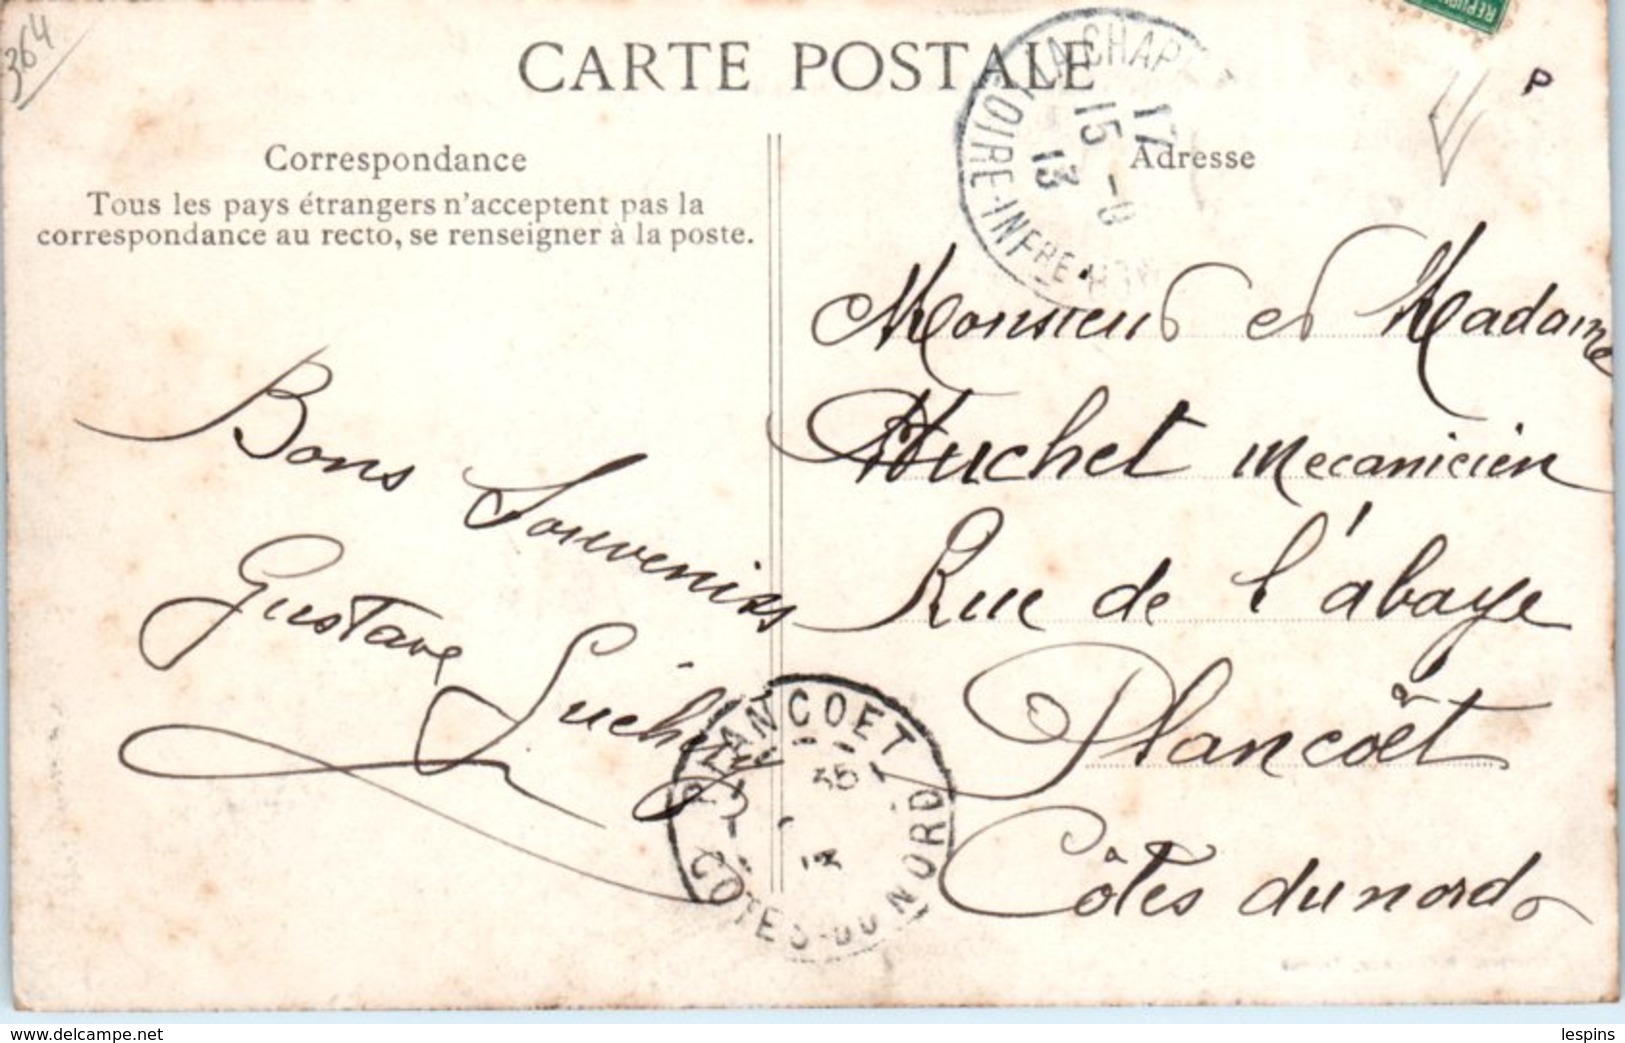 364
CARTE POSTALE
REPU
P
LA CHAP
LOIRE-INFRE
17
15
13
Correspondance
Tous les pays étrangers n'acceptent pas la
correspondance au recto, se renseigner à la poste.
Adresse
Bons Souvenirs
Gustave
Monsieur et Madame
Mecanicien
Rue de l'abaye
Plancoët
Côtes du nord
PLANCOET
35
13
COTES-DU-NORD
www.delcampe.net
lespins